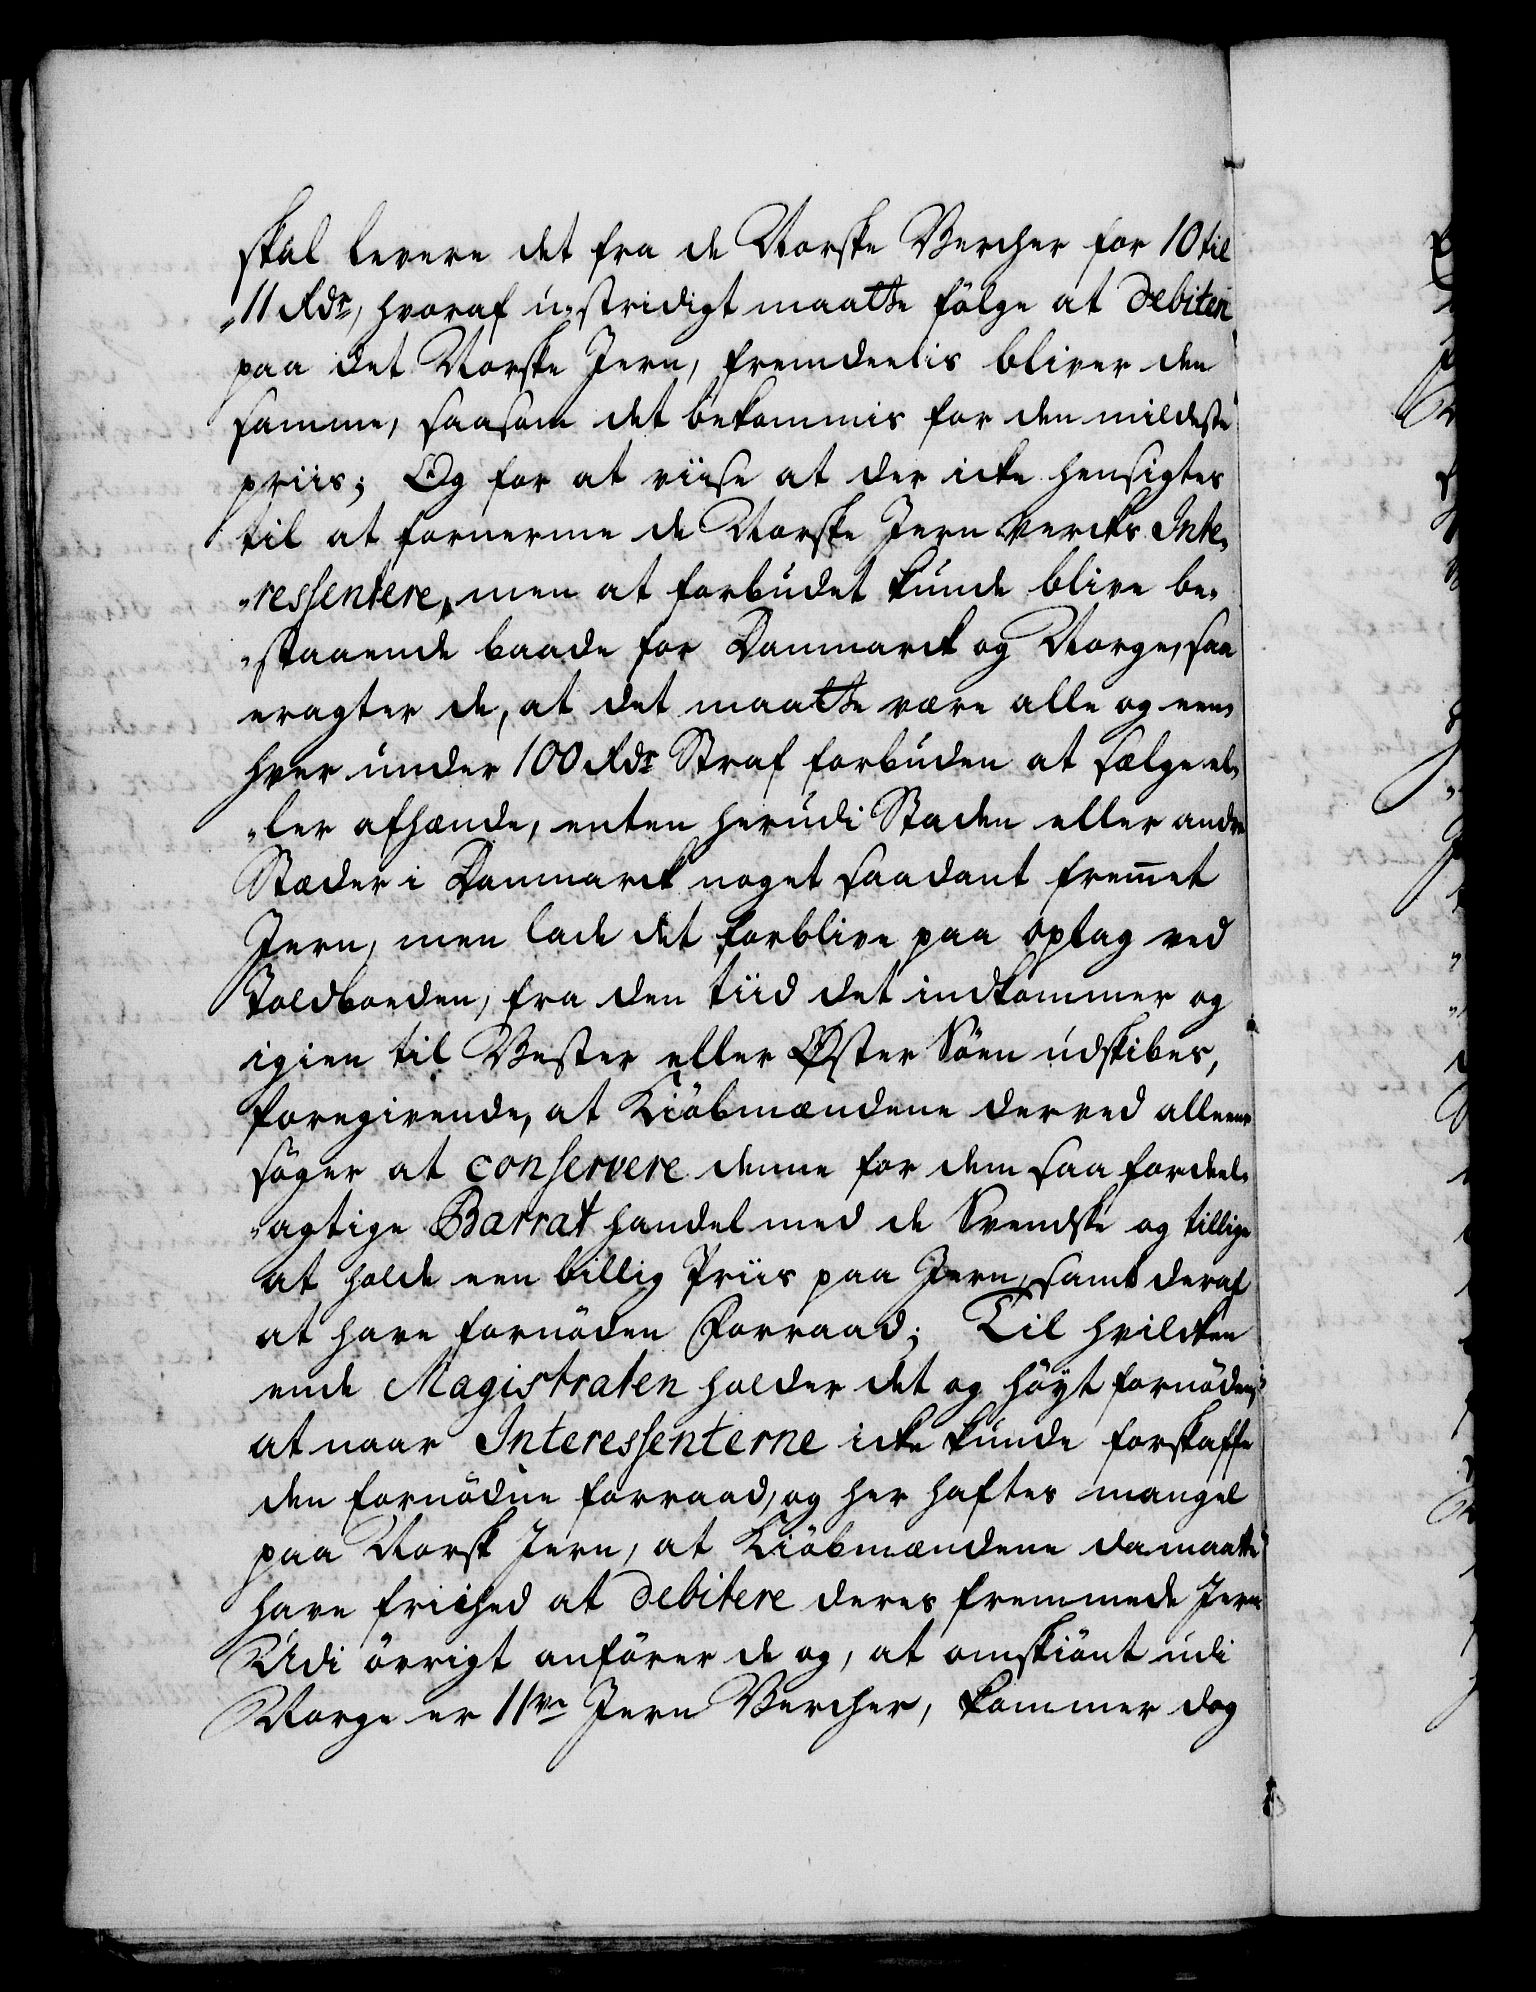 skal levere det fra de Norske Vercher for 10 til
11 Rdr, hvoraf u-stridigt maatte fölge at Debiten
paa det Norske Jern, fremdeelis bliver den
samme, saasom det bekommis for den mildeste
priis; Og for at viise at der icke hensigtes
til at fornerme de Norske Jern Vercks Inte-
ressentere, men at forbudet kunde blive be-
staaende baade for Danmarck og Norge, saa
eragter de, at det maatte være alle og een-
hver under 100 Rdr Straf forbuden at sælge el-
ler afhænde, enten herudi Staden eller andre
Stæder i Danmarck noget saadant fremet
Jern, men lade det forblive paa oplag ved
Toldboeden, fra den tiid det indkommer og
igien til Vester eller Øster Söen udskibes,
foregivende, at Kiöbmændene derved alleene
söger at conservere denne for dem saa fordeel-
agtige Barrat handel med de Svendske og tillige
at holde een billig Priis paa Jern, samt deraf
at have fornöden Forraad; Til hvilcken
ende Magistraten holder det og höyt fornöden,
at naar Interessenterne icke kunde forskaffe
den fornödne forraad, og her haftes mangel
paa Norsk Jern, at Kiöbmændene da maatte
have friehed at debitere deres fremmede Jern
Udi övrigt anförer de og, at omskiönt udi
Norge er 11ve Jern Vercher, kommer dog